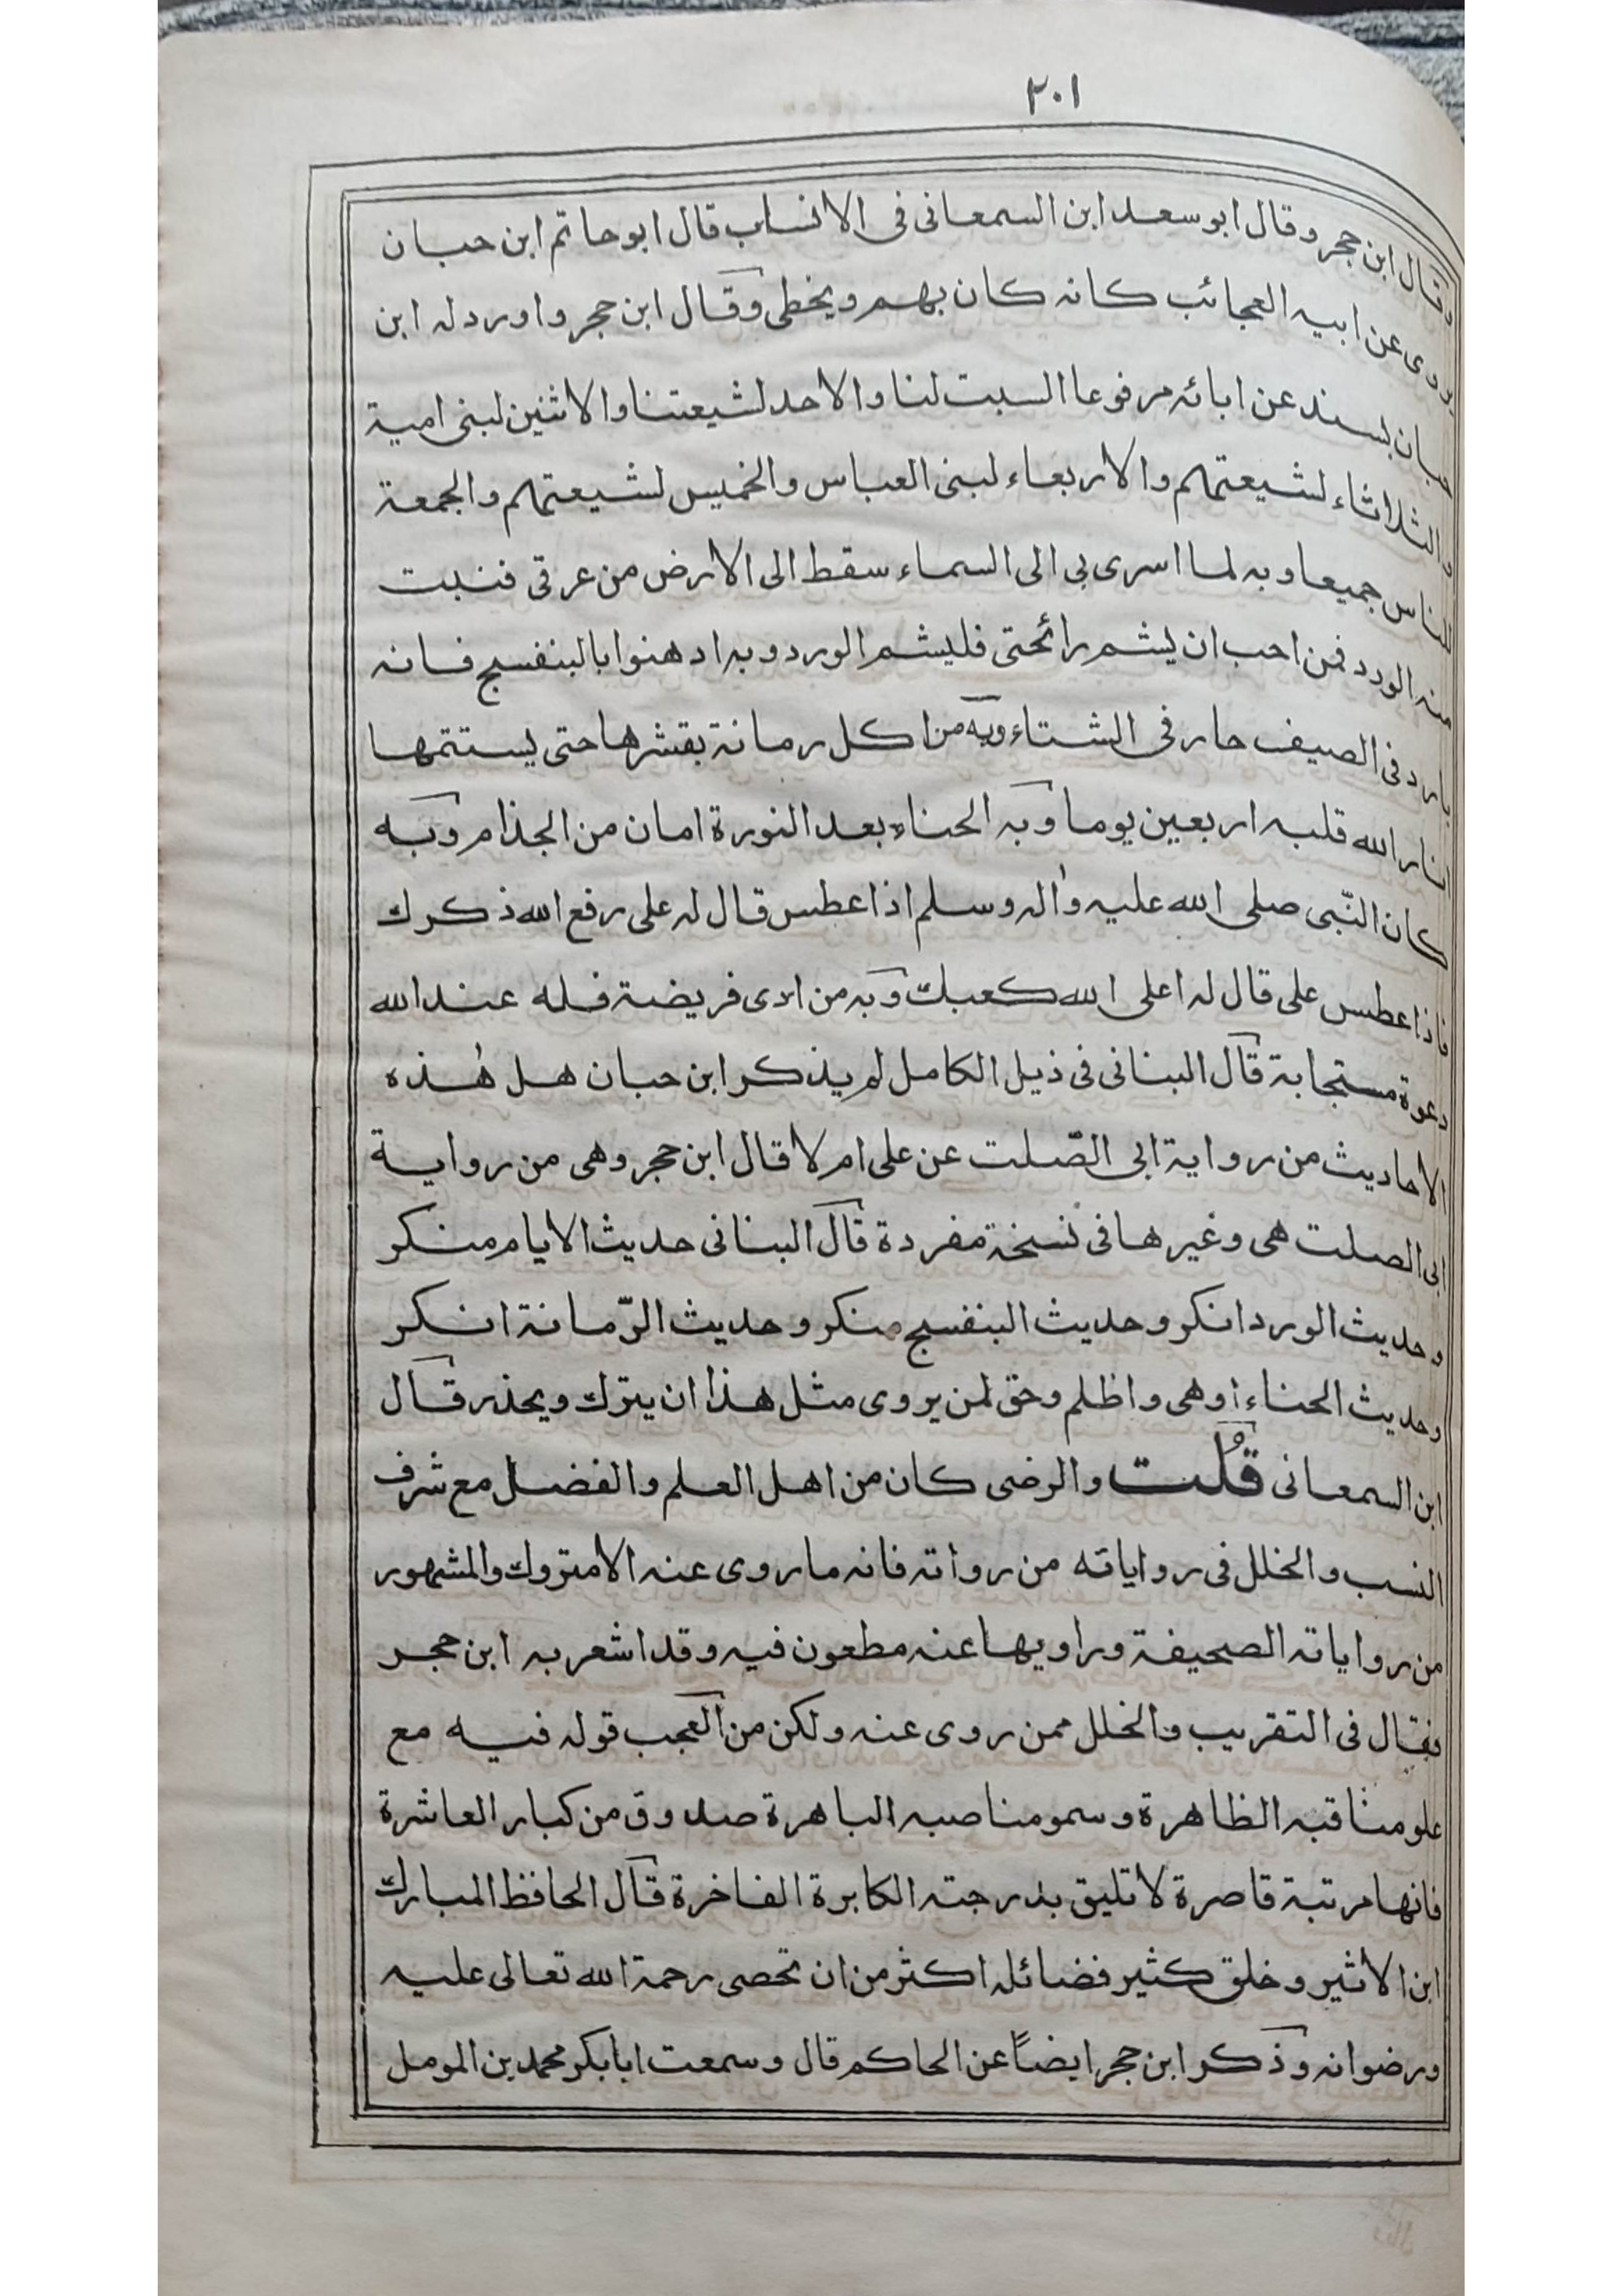 ٢٠١
وقال ابن حجر وقال ابو سعد ابن السمعانى فى الانساب قال ابو حاتم ابن حبان
يروى عن ابيه العجائب كانه كان يهم ويخطى وقال ابن حجر واورد له ابن
حبان بسند عن ابائه مرفوعا السبت لنا والاحد لشيعتنا والاثنين لبنى امية
والثلاثاء لشيعتهم والاربعاء لبنى العباس والخميس لشيعتهم والجمعة
للناس جميعا وبه لما اسرى بى الى السماء سقط الى الارض من عرقى فنبت
منه الورد فمن احب ان يشم رائحتى فليشم الورد وبه ادهنوا بالبنفسج فانه
بارد فى الصيف حار فى الشتاء وبه من اكل رمانة بقشرها حتى يستتمها
انار الله قلبه اربعين يوما وبه الحناء بعد النورة امان من الجذام وبه
كان النّبى صلى الله عليه واٰله وسلم اذا عطس قال له على رفع الله ذكرك
فاذا عطس على قال له اعلى الله كعبك وبه من ادى فريضة فله عند الله
دعوة مستجابة قال البنانى فى ذيل الكامل لم يذكر ابن حبان هل هٰذه
الاحاديث من رواية ابى الصّلت عن على ام لا قال ابن حجر وهى من رواية
ابى الصلت هى وغيرها فى نسخة مفردة قال البنانى حديث الايام منكر
وحديث الورد انكر وحديث البنفسج منكر وحديث الرّمانة انكر
وحديث الحناء اوهى واظلم وحق لمن يروى مثل هذا ان يترك ويحذر قال
ابن السمعانى قلت والرضى كان من اهل العلم والفضل مع شرف
النسب والخلل فى رواياته من رواته فانه ما روى عنه الا متروك والمشهور
من رواياته الصحيفة وراويها عنه مطعون فيه وقد اشعر به ابن حجر
فقال فى التقريب والخلل ممن روى عنه ولكن من العجب قوله فيه مع
علو مناقبه الظاهرة وسمو مناصبه الباهرة صدوق من كبار العاشرة
فانها مرتبة قاصرة لا تليق بدرجته الكابرة الفاخرة قال الحافظ المبارك
ابن الاثير وخلق كثير فضائله اكثر من ان تحصى رحمة الله تعالى عليه
ورضوانه وذكر ابن حجر ايضاً عن الحاكم قال وسمعت ابا بكر محمد بن المومل